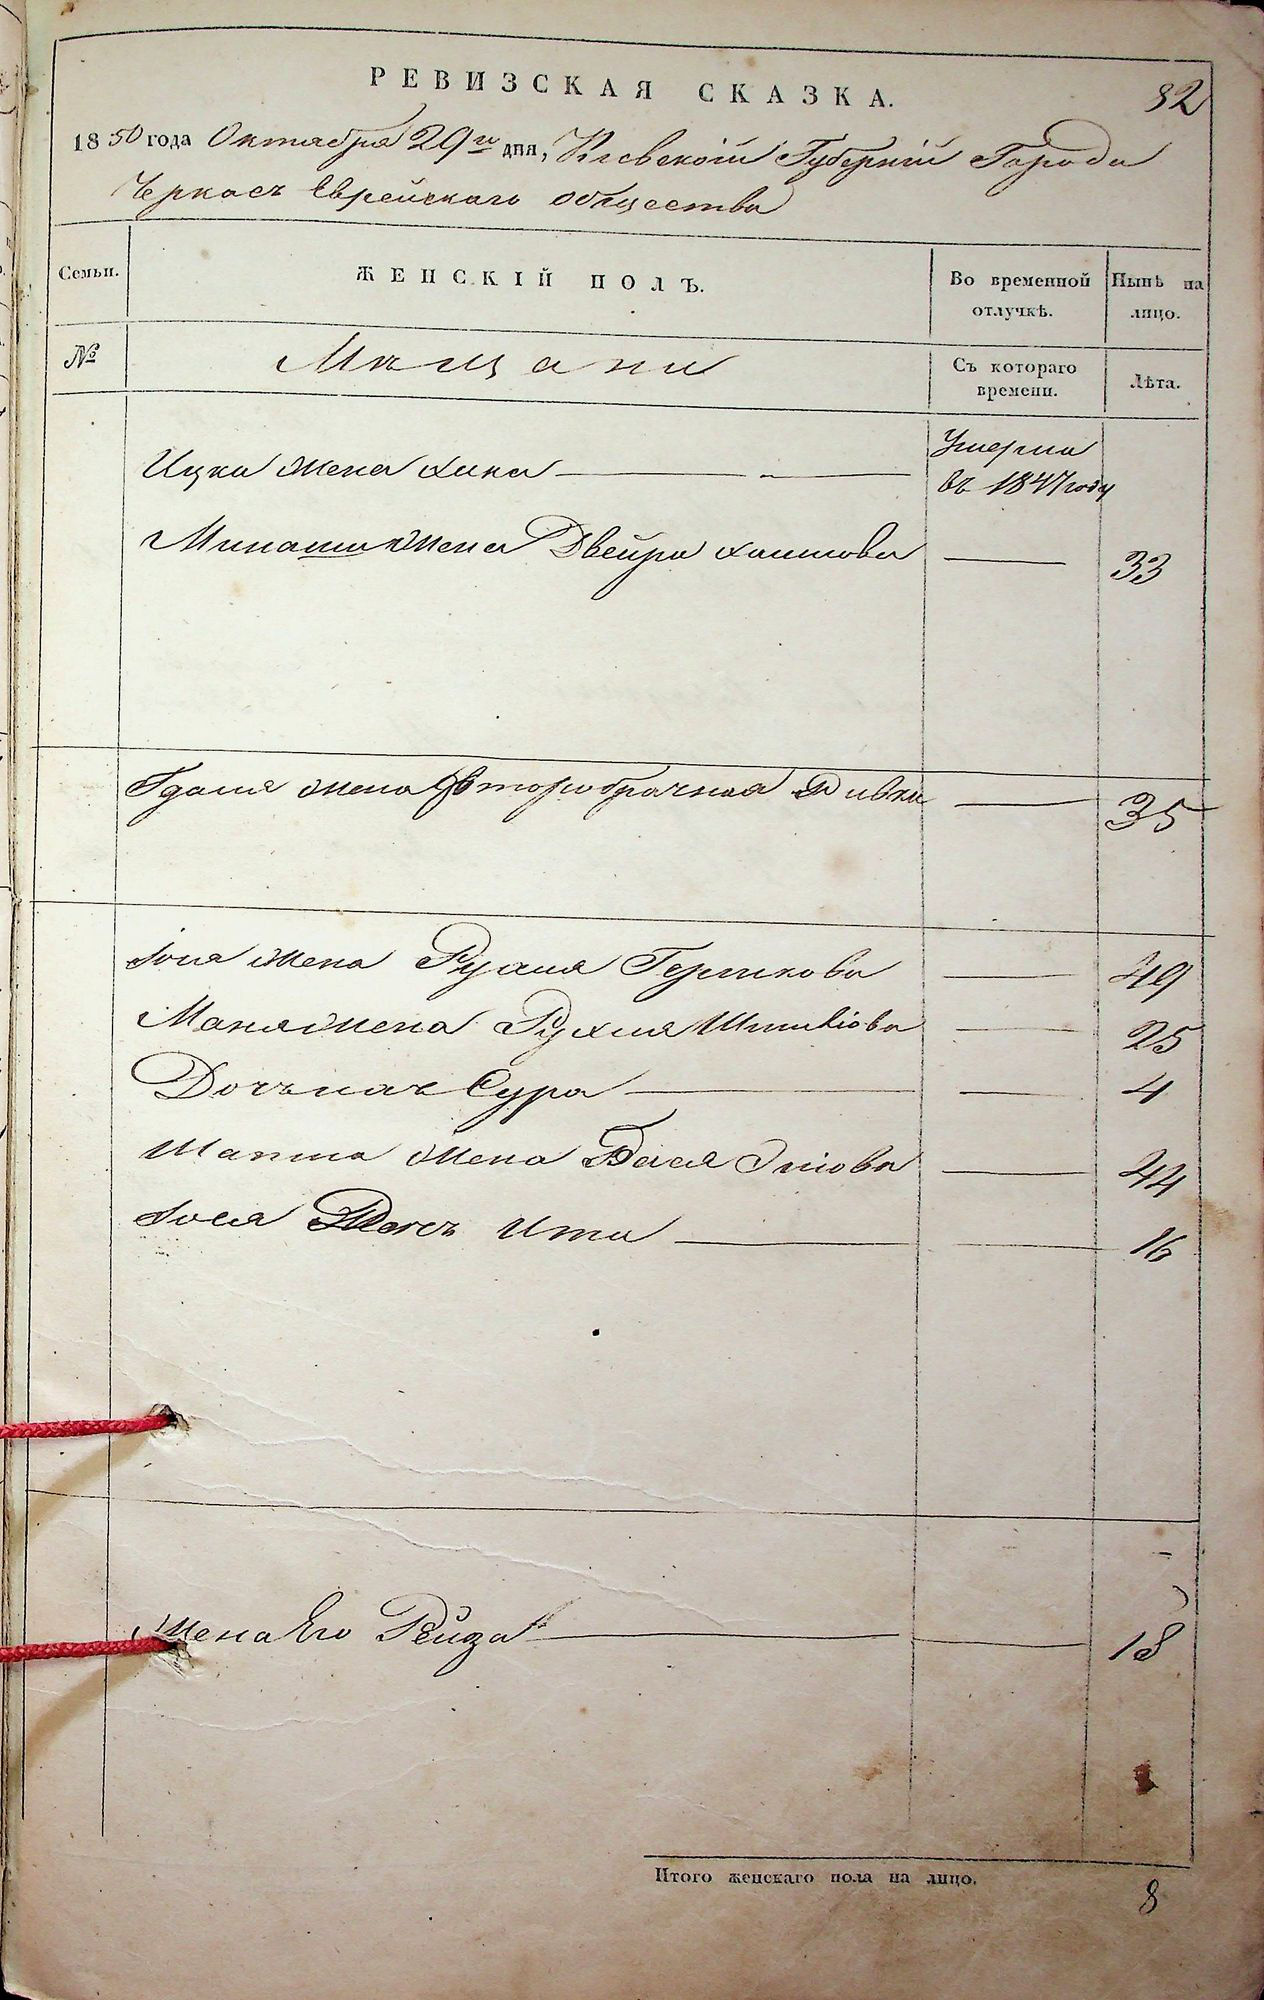 РЕВИЗСКАЯ СКАЗКА.
82
1850 года Октября 29го дня, Кіевской Губерніи Города
Черкасъ Еврейскаго общества
Семьи.
ЖЕНСКІЙ ПОЛЪ.
Во временной отлучкѣ.
Нынѣ на лицо.
№
Мѣщани
Съ котораго времени.
Лѣта.
Ицка жена Хана — Умерла въ 1847 году
Минаши жена Двейра Хаимова — 33
Гдаля жена второбрачная Ривка — 35
Іоля жена Рухля Гершкова — 49
жена Рухля — 25
Дочь Сура — 4
жена Бася — 44
Іося Дочь Ита — 16
Жена Его Рейза — 18
Итого женскаго пола на лицо.
8